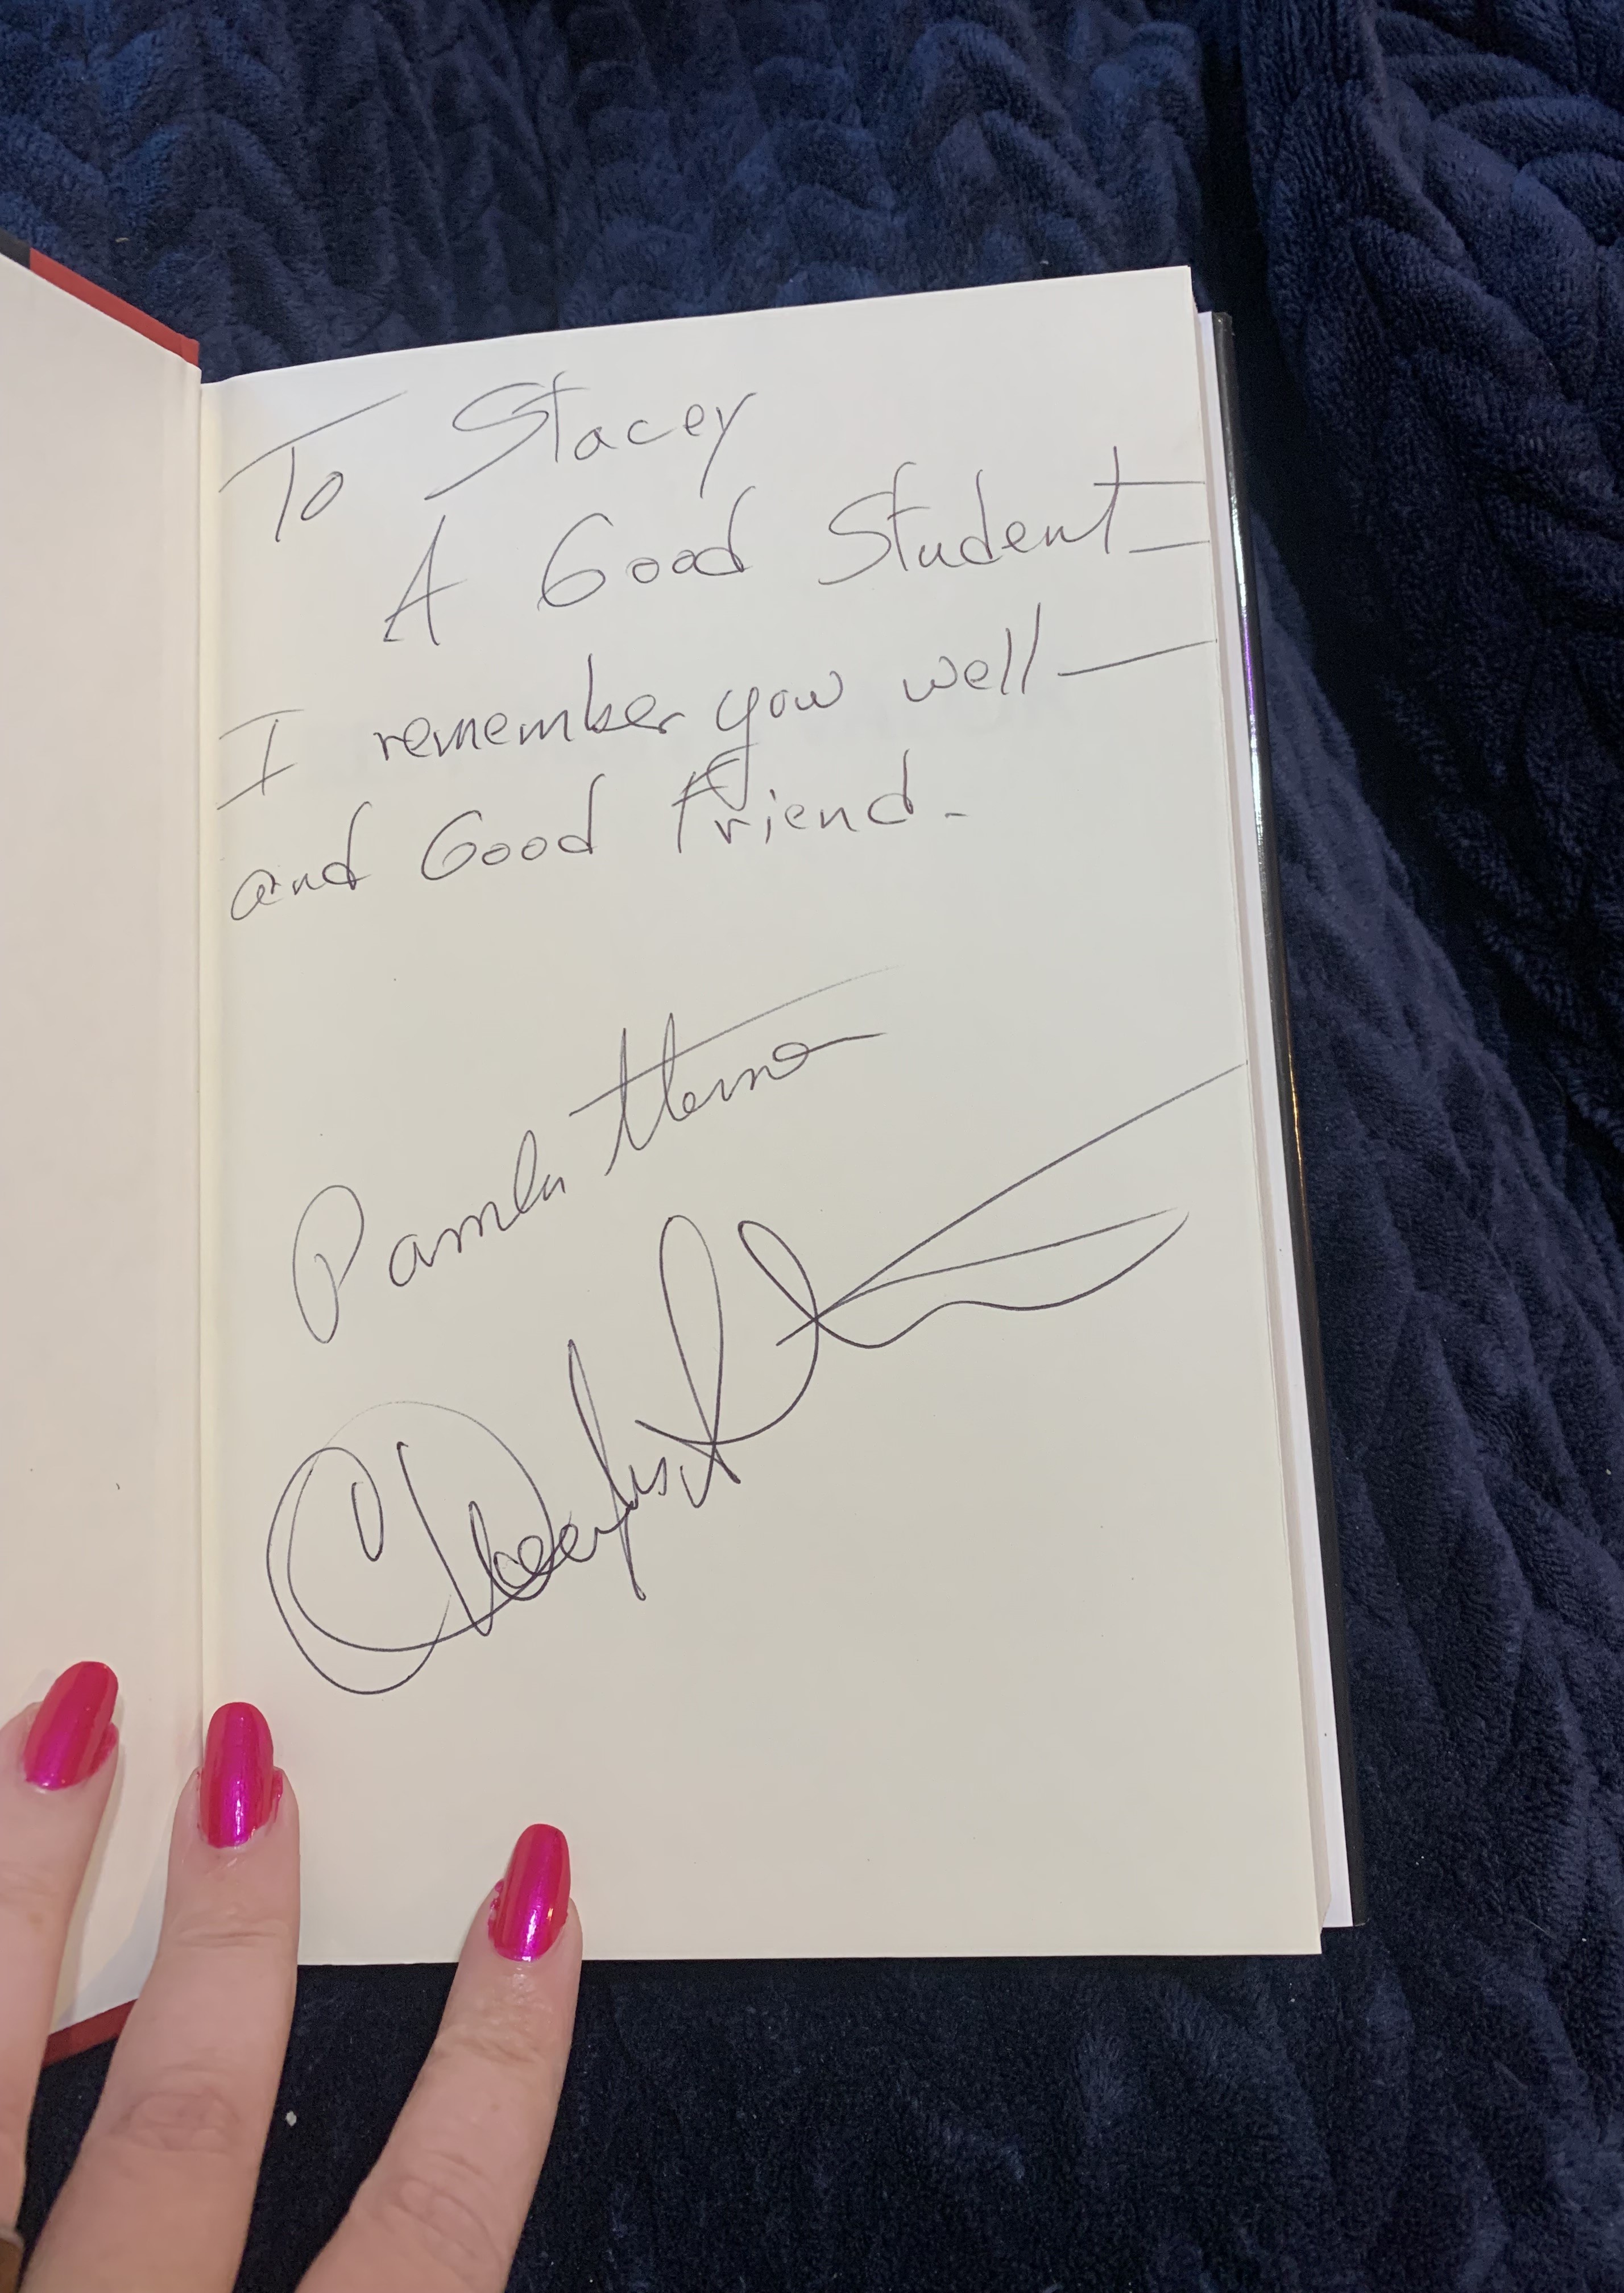 To Stacey
A Good Student -
I remember you well -
and Good Friend.
Pamela